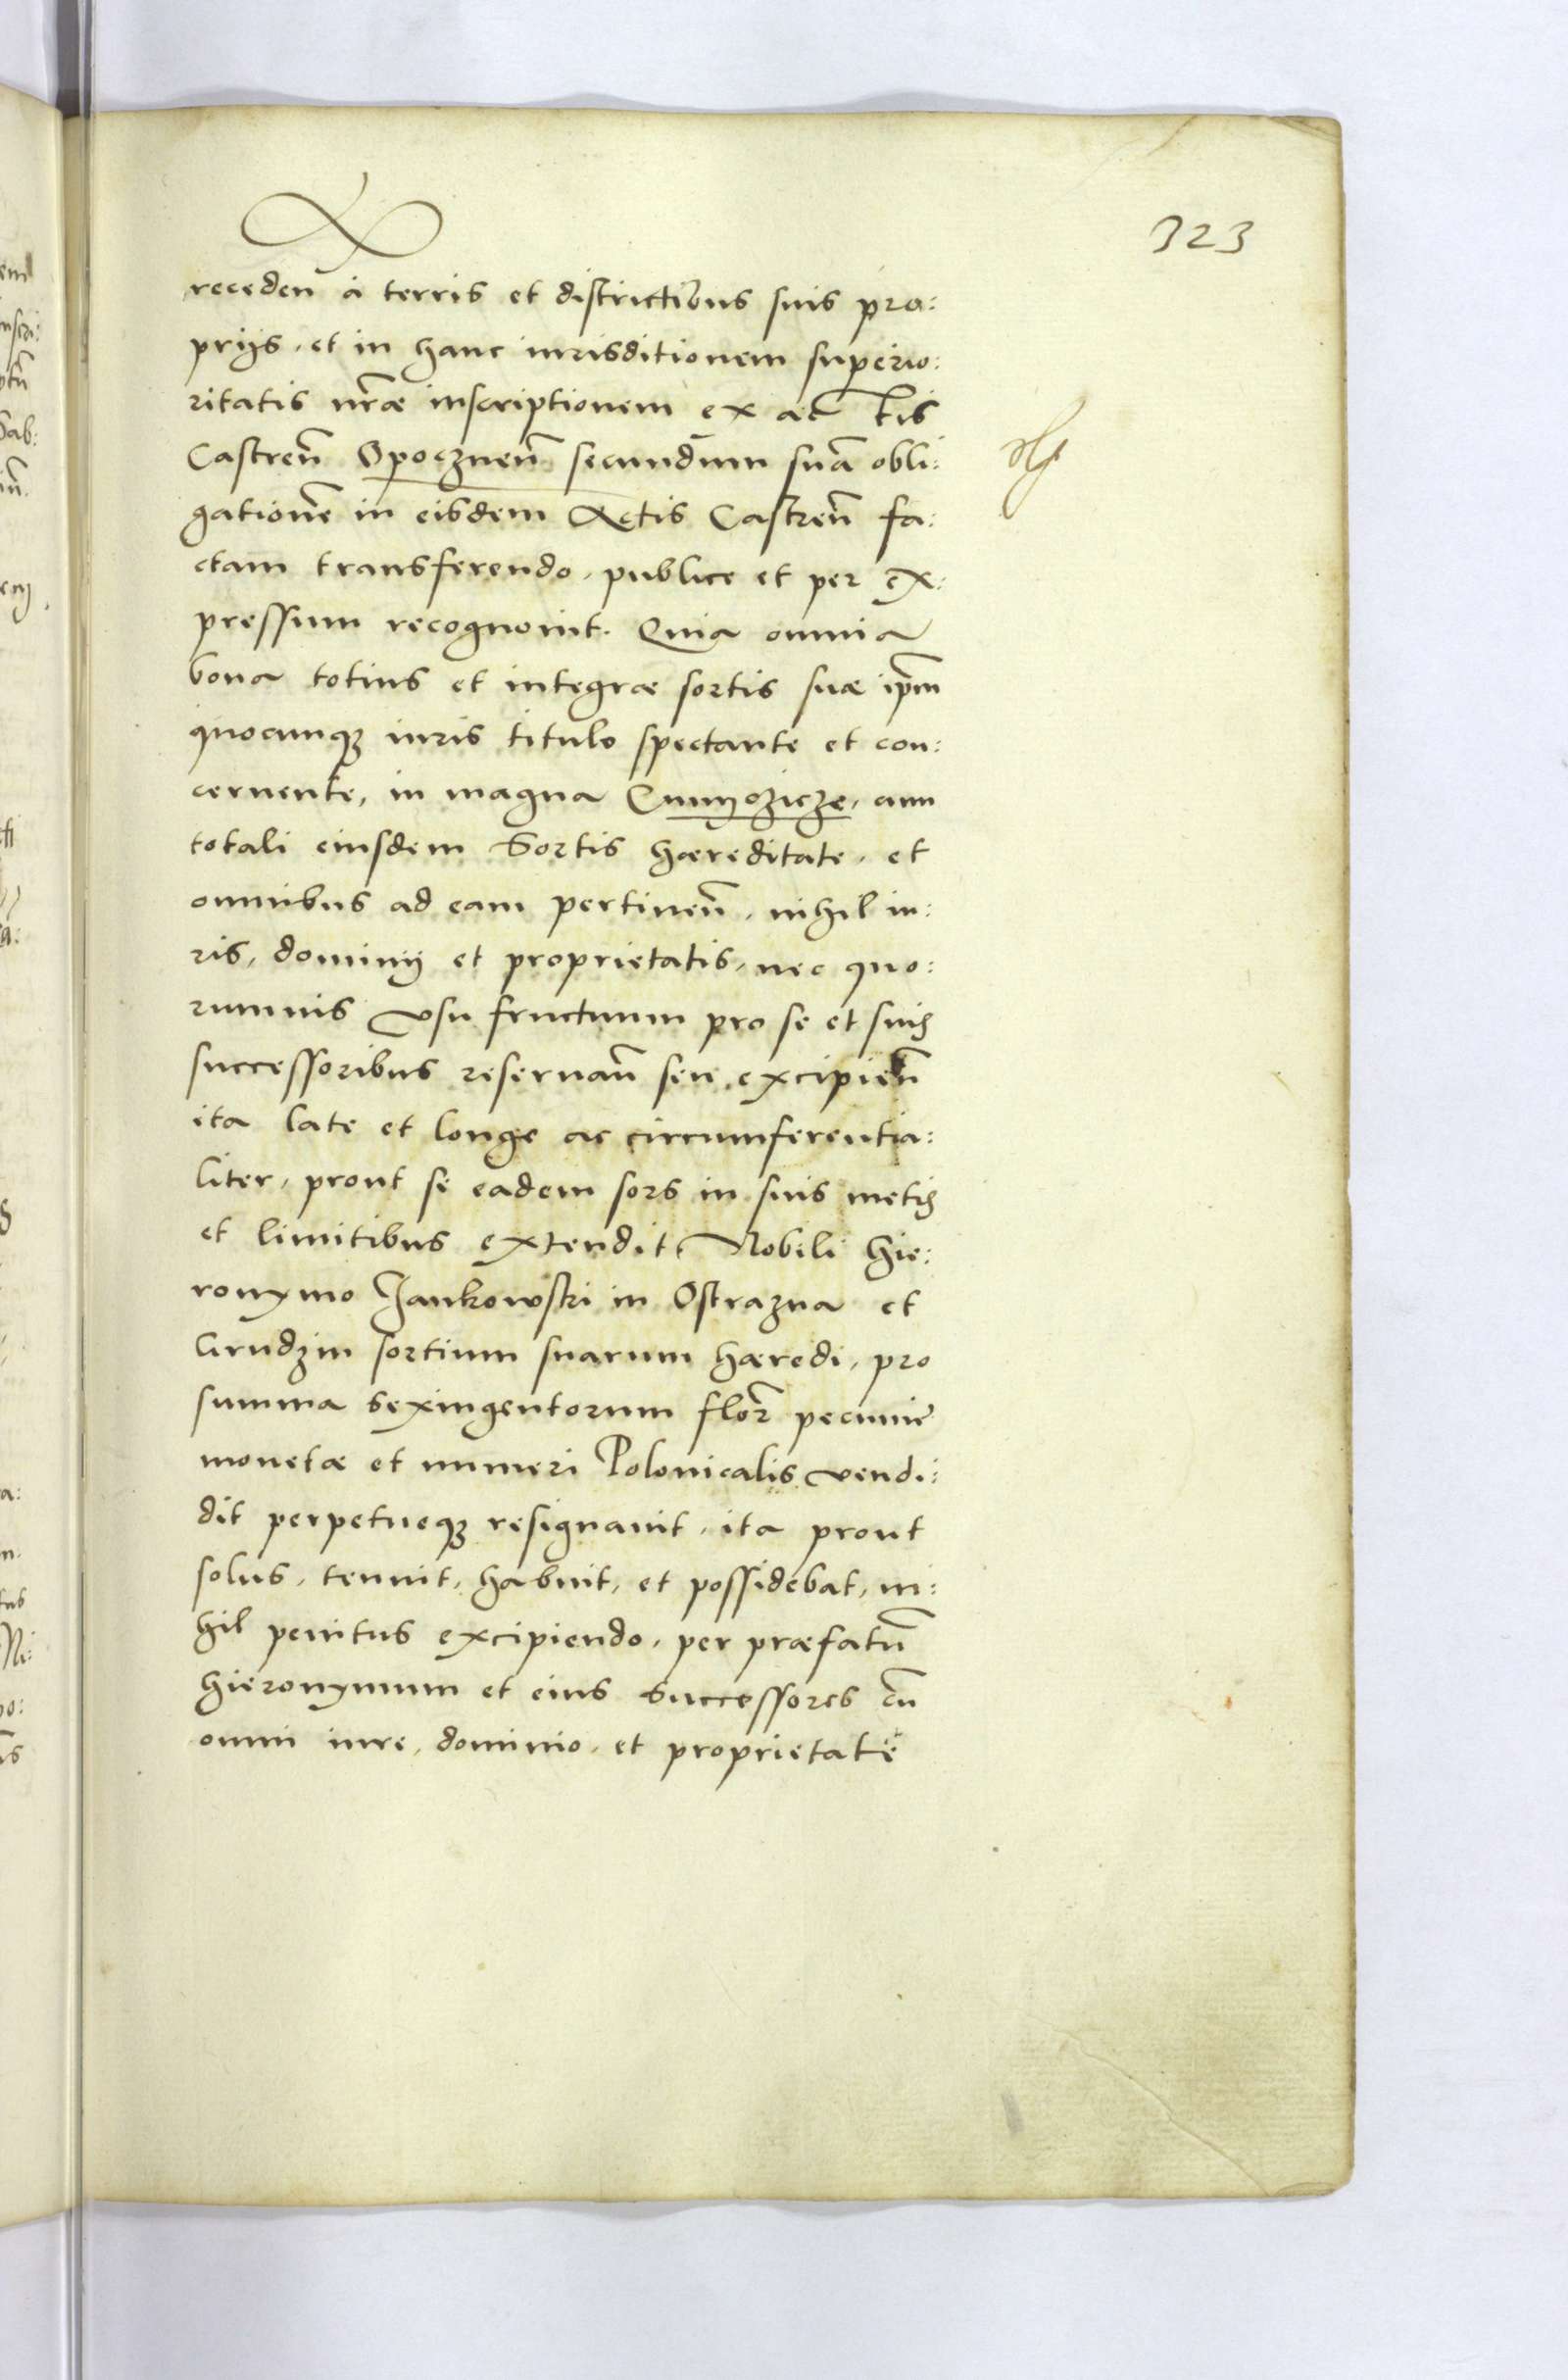 323
receden̄ à terris et districtibus suis pro:
prijs, et in hanc iurisditionem superio:
ritatis nr̄æ inscriptionem ex ac tis
Castren̄ Opocznen̄ secundum suā obli:
gationē in eisdem Actis Castren̄ fa:
ctam transferendo, publice et per ex:
pressum recognouit. Quia omnia
bona totius et integræ sortis suæ ip̄m
quocunqꝫ iuris titulo spectante et con:
cernente, in magna cum
totali eiusdem Sortis hæreditate, et
omnibus ad eam pertinen̄, nihil iu:
ris, dominij et proprietatis, nec quo:
rumuis vsu fructuum pro se et suis
successoribus reseruan̄ seu excipien̄
ita late et longe ac circumferentia:
liter, prout se eadem sors in suis metis
et limitibus extendit, Nobili Hie:
ronymo Jankowski in Ostrazna et
Grudzin sortium suarum hæredi, pro
summa Sexingentorum flor̄ pecuniæ
monetæ et numeri Polonicalis vendi:
dit perpetueqꝫ resignauit, ita prout
solus, tenuit, habuit, et possidebat, ni:
hil penitus excipiendo, per præfatū
Hieronymum et eius Successores cū
omni iure, dominio, et proprietate